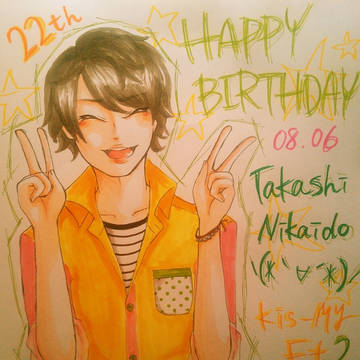 22th
HAPPY
BIRTHDAY
08.06
Takashi
Nikaido
\(*´∀`*)
kis-My-
Ft2